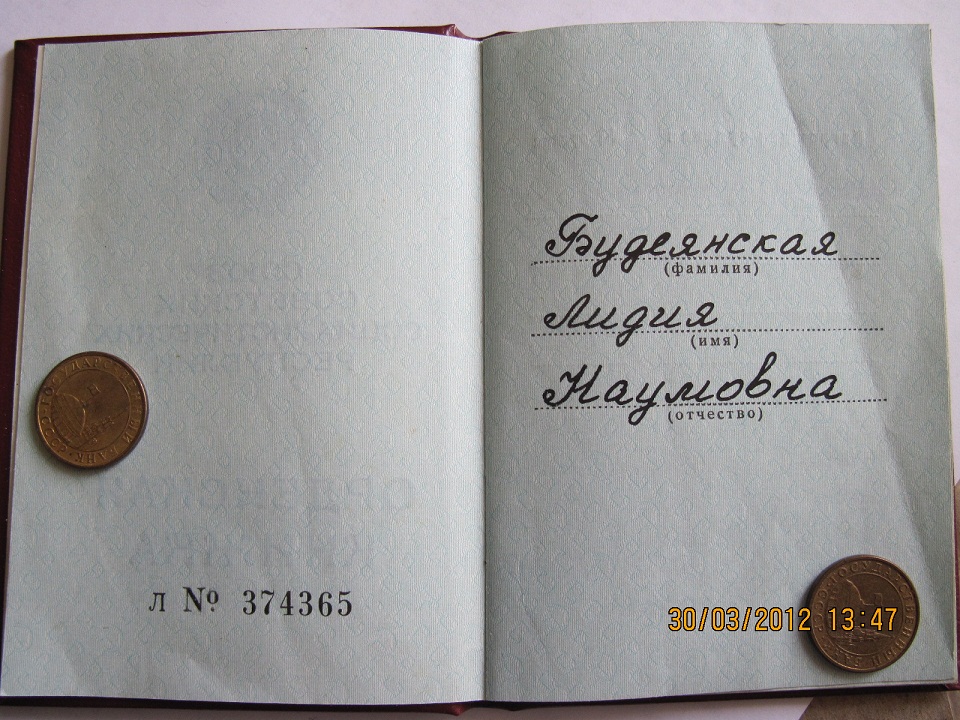 Л № 374365
Будеянская
(фамилия)
Лидия
(имя)
Наумовна
(отчество)
ГОСУДАРСТВЕННЫЙ БАНК
30/03/2012 13:47